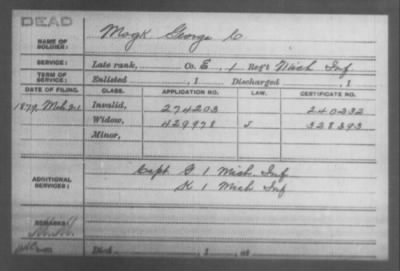 DEAD
NAME OF SOLDIER: Mogk George C
SERVICE: Late rank, Co. E, 1 Reg't Mich Inf
TERM OF SERVICE: Enlisted , 1 Discharged , 1
DATE OF FILING. CLASS. APPLICATION NO. LAW. CERTIFICATE NO.
1879 Mch 21 Invalid, 274203 240232
Widow, 429978 J 328393
Minor,
ADDITIONAL SERVICES: Capt G 1 Mich. Inf
K 1 Mich Inf
REMARKS:
Died , 1 , at